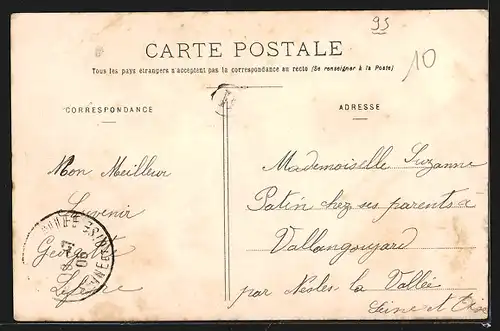 95
10
CARTE POSTALE
Tous les pays étrangers n'acceptent pas la correspondance au recto (Se renseigner à la Poste)
CORRESPONDANCE
ADRESSE
Mon Meilleur
Souvenir
Lefevre
Mademoiselle Suzanne
Patin chez ses parents à
Vallangoujard
par Nesles la Vallée
Seine et Oise